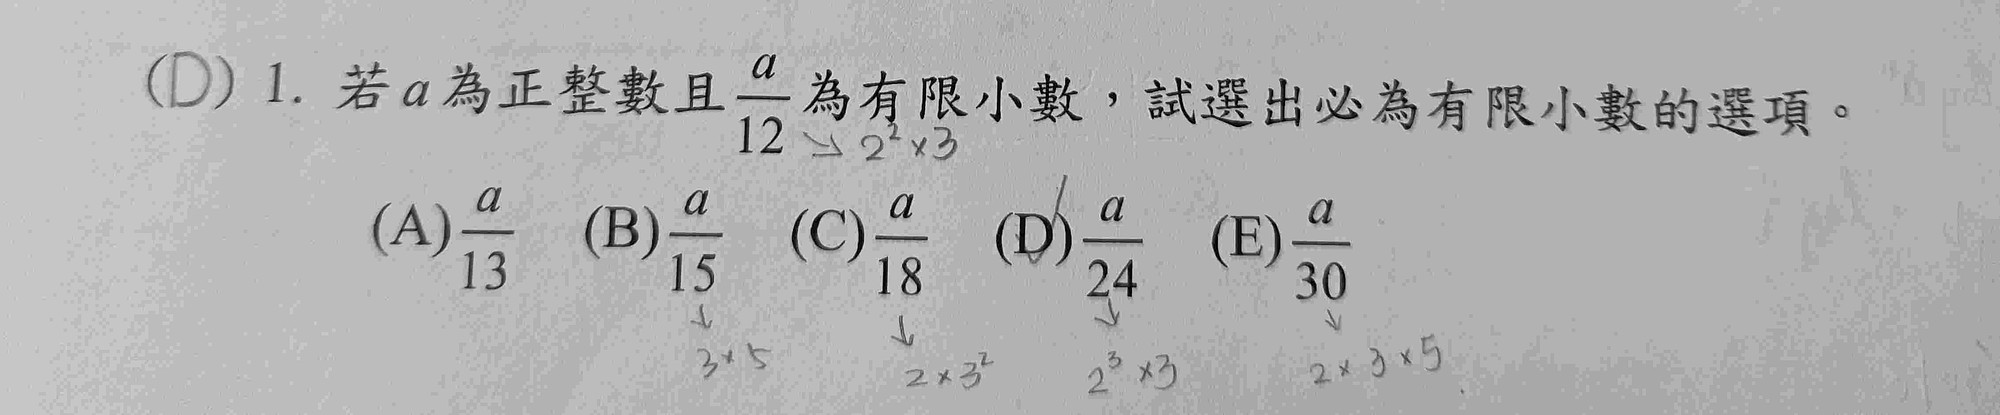 (D) 1. 若a為正整數且a/12為有限小數，試選出必為有限小數的選項。
↘ 2²×3
(A) a/13 (B) a/15 (C) a/18 (D) a/24 (E) a/30
↓ ↓ ↓ ↓
3×5 2×3² 2³×3 2×3×5